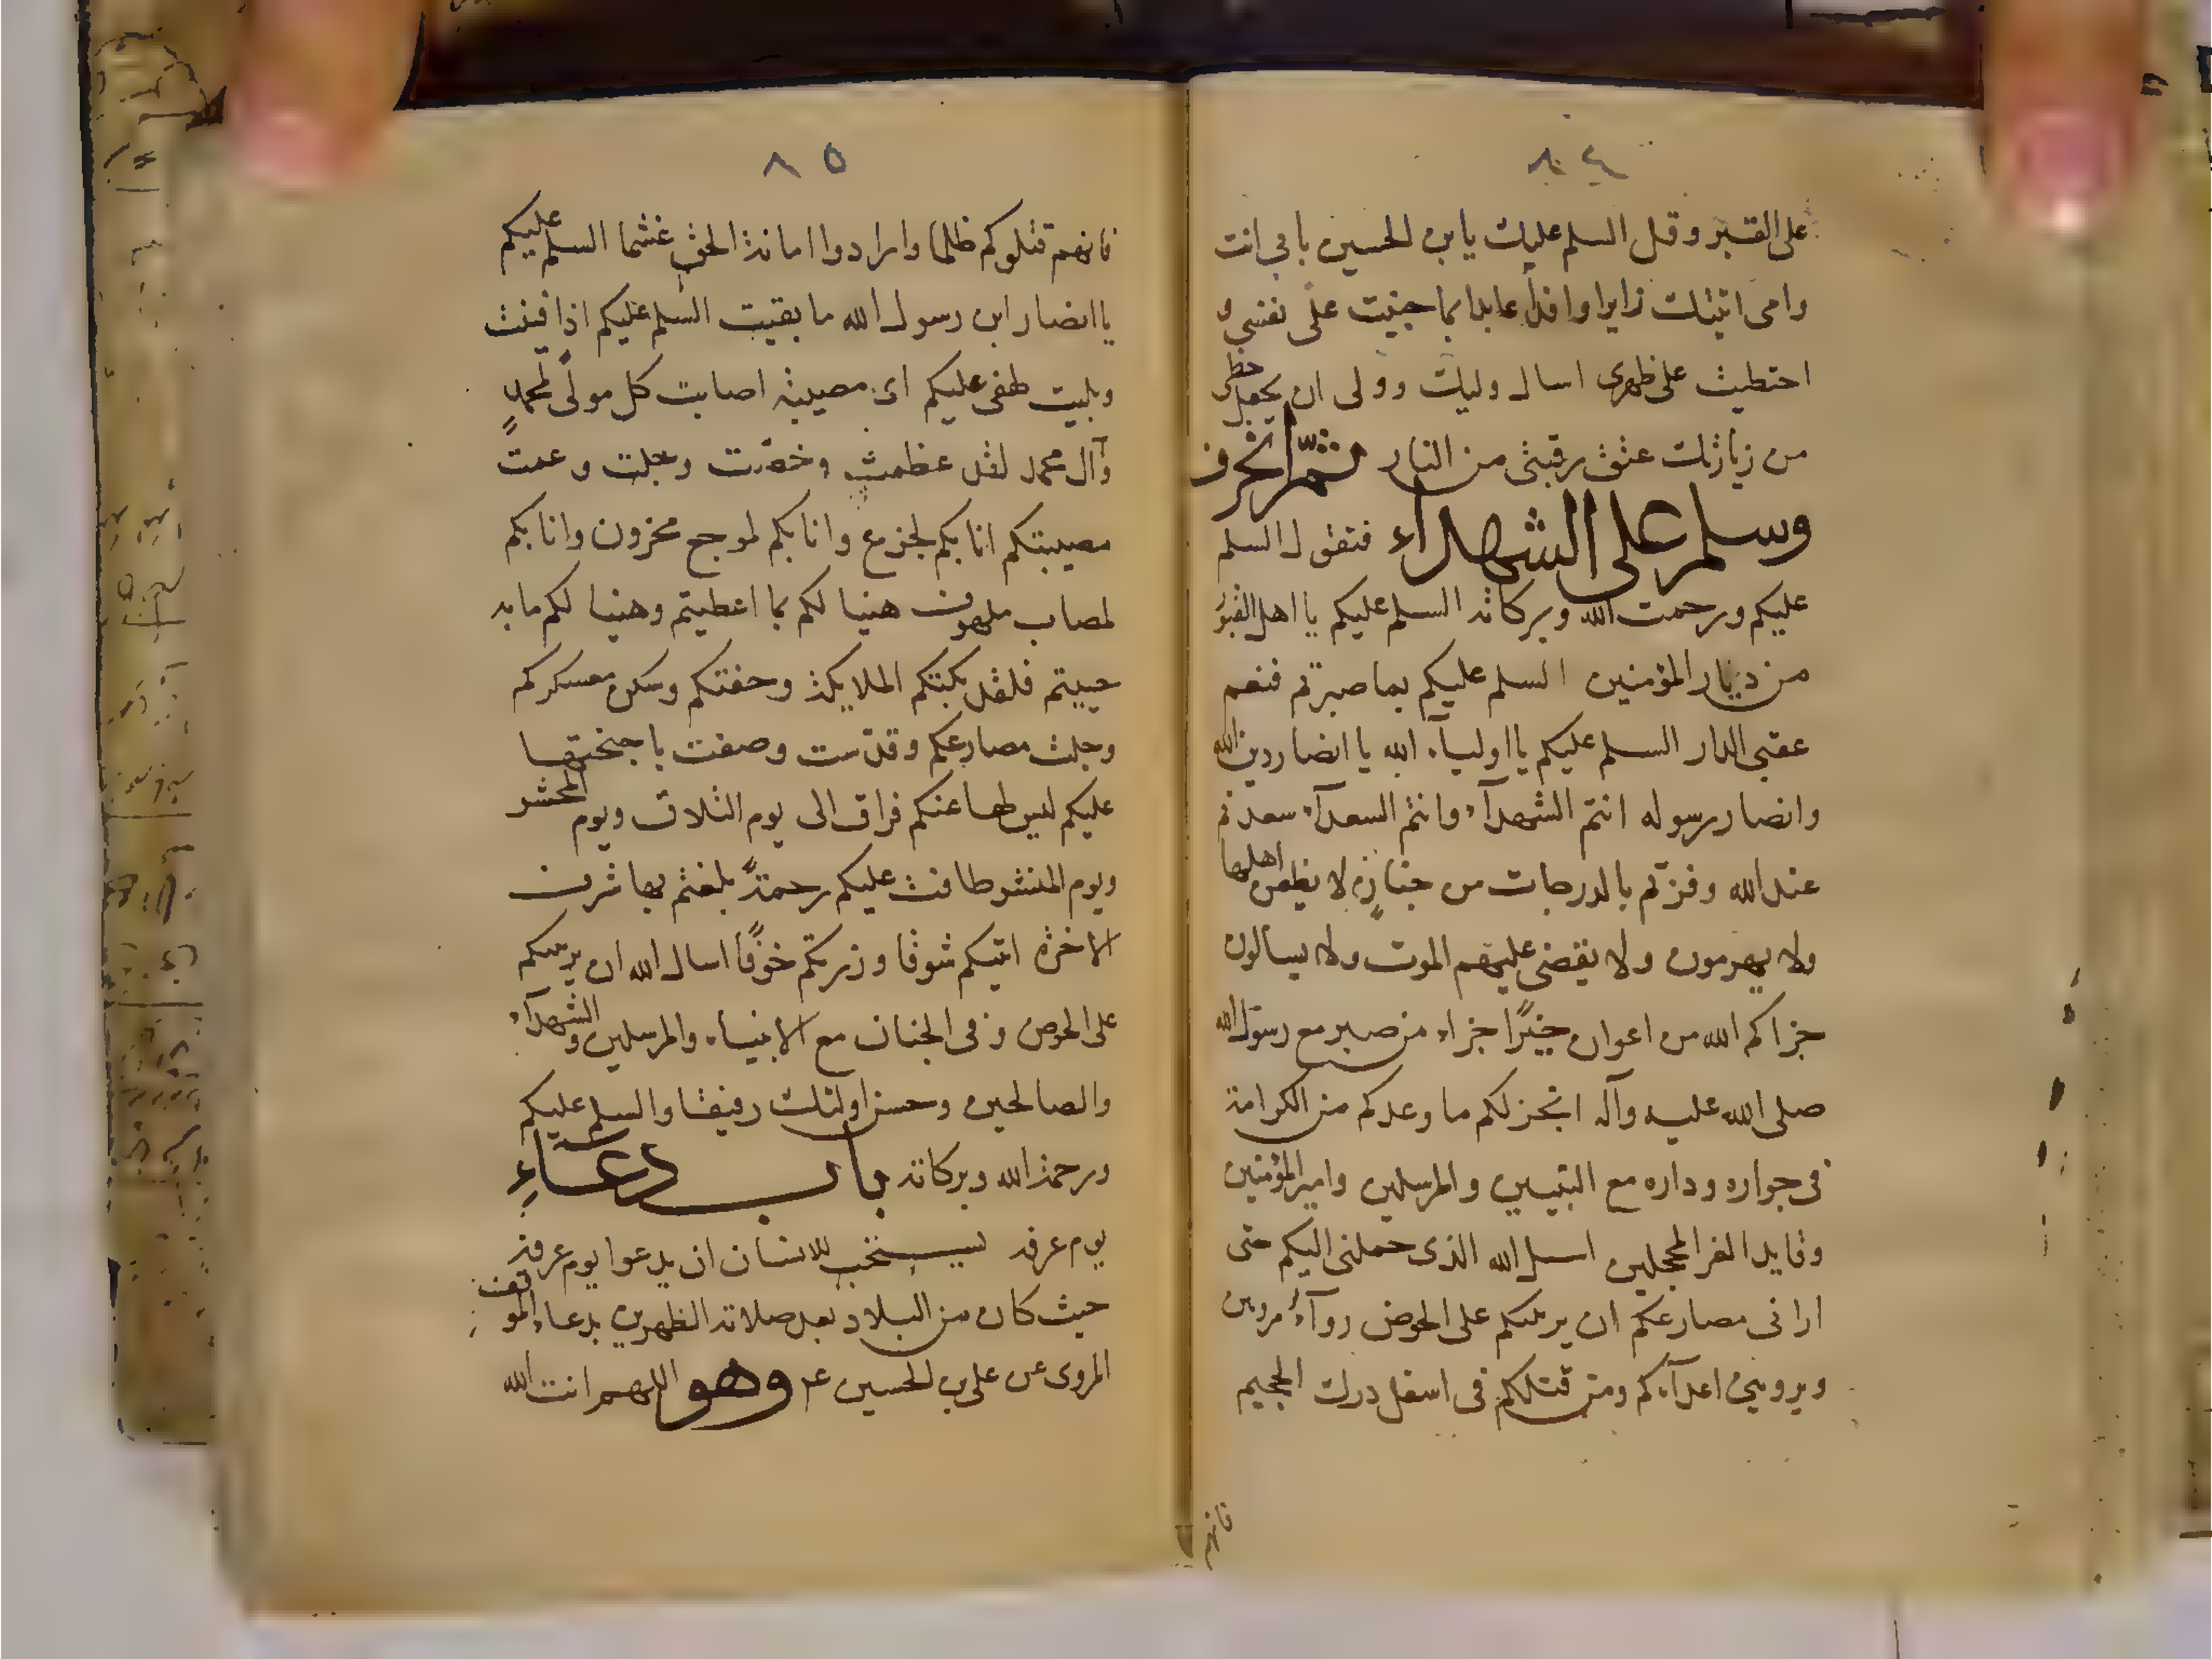 ٨٤
على القبر وقل السلم عليك يابن الحسين بابي انت
وامى اتيتك زايرا وافدا عايدا بما جنيت على نفسي و
احتطبت على ظهرى اسال وليك وولى ان يجعل حظى
من زيارتك عتق رقبتى من النار ثم انحرف
وسلم على الشهداء فتقول السلم
عليكم ورحمت الله وبركاته السلم عليكم يا اهل القبور
من ديار المؤمنين السلم عليكم بما صبرتم فنعم
عقبى الدار السلم عليكم يا اولياء الله يا انصار دين الله
وانصار رسوله انتم الشهدآء وانتم السعدآء سعدتم
عند الله وفزتم بالدرجات من جنات لا يظعن اهلها
ولا يهرمون ولا يقضى عليهم الموت ولا يسالون
جزاكم الله من اعوان خيرًا جزاء من صبر مع رسول الله
صلى الله عليه وآله انجز لكم ما وعدكم من الكرامة
فى جواره وداره مع النبيين والمرسلين وامير المؤمنين
وقايد الغر المحجلين اسل الله الذى حملنى اليكم حتى
ارانى مصارعكم ان يرينكم على الحوض روآء مرويين
ويرويني اعدآءكم ومن قتلكم فى اسفل درك الجحيم
فانهم
٨٥
فانهم قتلوكم ظلما وارادوا امانة الحق غشما السلم عليكم
يا انصار ابن رسول الله ما بقيت السلم عليكم اذا فنيت
وبليت لهفى عليكم اى مصيبة اصابت كل مولًى لمحمدٍ
وآل محمد لقد عظمت وخصّت وجلت وعمت
مصيبتكم انا بكم لجزع وانا بكم لموجع محزون وانا بكم
لمصاب ملهوف هنيا لكم بما اعطيتم وهنيا لكم ما به
حييتم فلقد بكتكم الملايكة وحفتكم وسكن معسكركم
وجلت مصارعكم وقدّست وصفت باجنحتها
عليكم ليس لها عنكم فراق الى يوم التلاق ويوم المحشر
ويوم المنشر طافت عليكم رحمةً بلغتم بها شرف
الاخرة اتيتكم شوقا وزرتكم خوفًا اسال الله ان يرينكم
على الحوض وفى الجنان مع الانبياء والمرسلين والشهدآء
والصالحين وحسن اولئك رفيقا والسلم عليكم
ورحمة الله وبركاته باب دعاء
يوم عرفه يستحب للانسان ان يدعوا يوم عرفة
حيث كان من البلاد بعد صلاته الظهرين بدعاء الموقف
المروى عن على بن الحسين ع وهو اللهم انت الله